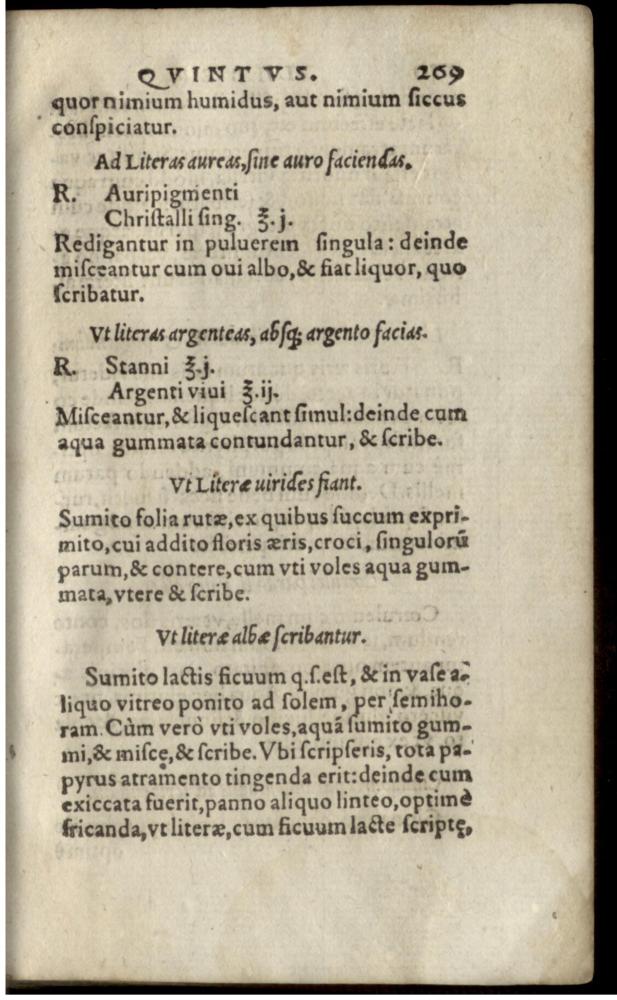 QVINTVS. 269
quor nimium humidus, aut nimium ſiccus
conſpiciatur.
Ad Literas aureas, ſine auro faciendas.
R. Auripigmenti
Chriſtalli ſing. ℥.j.
Redigantur in puluerem ſingula: deinde
miſceantur cum oui albo, & fiat liquor, quo
ſcribatur.
Vt literas argenteas, abſq; argento facias.
R. Stanni ℥.j.
Argenti viui ℥.ij.
Miſceantur, & liqueſcant ſimul: deinde cum
aqua gummata contundantur, & ſcribe.
Vt Literæ uirides fiant.
Sumito folia rutæ, ex quibus ſuccum expri-
mito, cui addito floris æris, croci, ſingulorū
parum, & contere, cum vti voles aqua gum-
mata, vtere & ſcribe.
Vt literæ albæ ſcribantur.
Sumito lactis ficuum q.ſ.eſt, & in vaſe a-
liquo vitreo ponito ad ſolem, per ſemiho-
ram. Cùm verò vti voles, aquā ſumito gum-
mi, & miſce, & ſcribe. Vbi ſcripſeris, tota pa-
pyrus atramento tingenda erit: deinde cum
exiccata fuerit, panno aliquo linteo, optimè
fricanda, vt literæ, cum ficuum lacte ſcriptę,